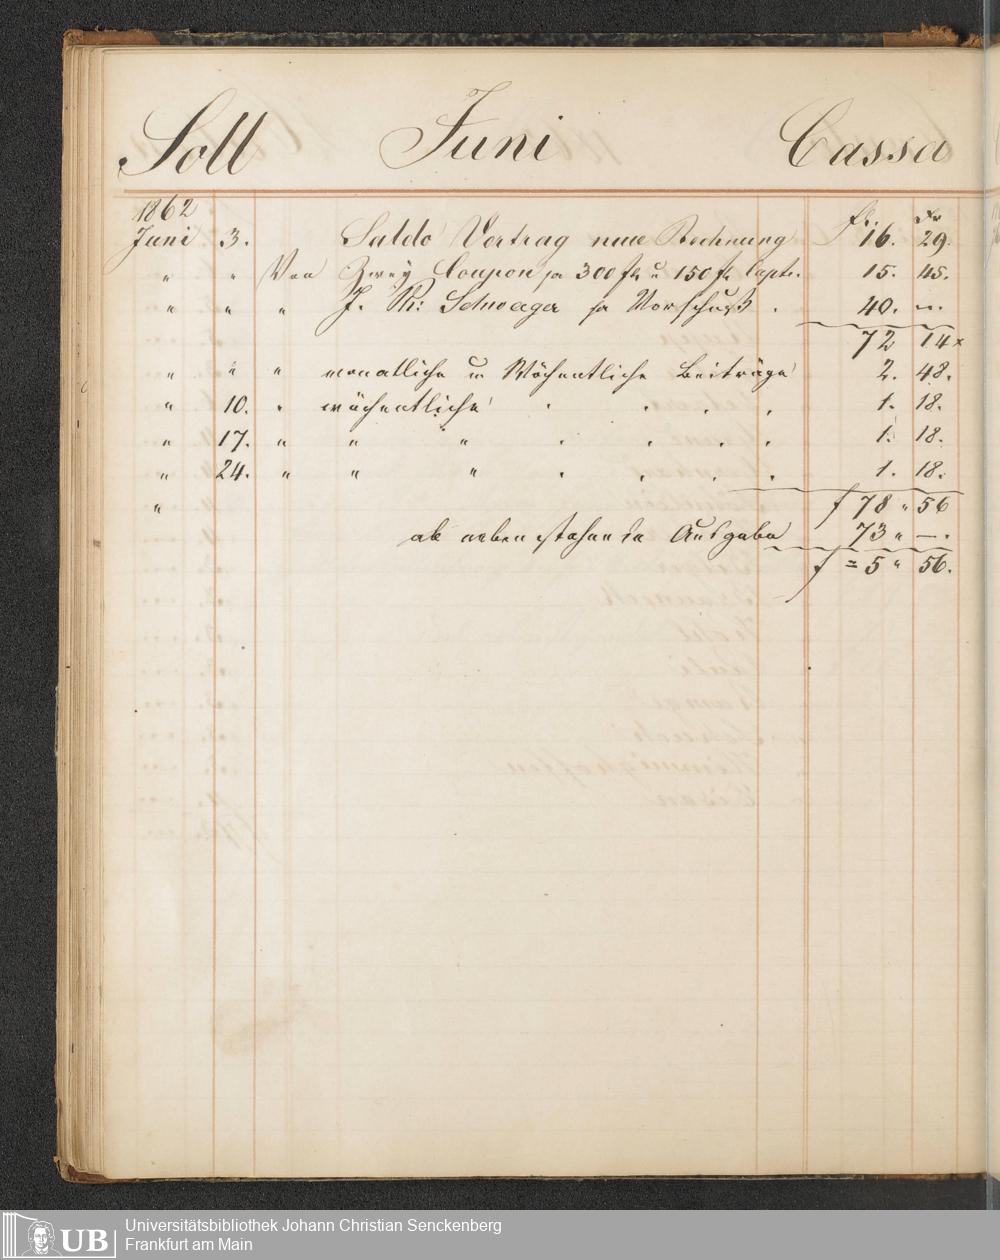 Soll Juni Cassa
1862 fl. xr
Juni 3. Saldo Vortrag neue Rechnung 16. 29.
" " Von Zwey Coupon pr 300 fl u 150 fl Capt. 15. 45.
" " " J. Ph: Schwager pr Vorschuß . 40. —.
72 14 x
" " " monatliche u Wöchentliche Beiträge 2. 48.
" 10. " wöchentliche . . . . 1. 18.
" 17. " " " . . . . 1. 18.
" 24. " " " . . . . 1. 18.
" f 78 " 56
ab nebenstehende Ausgabe 73 " —.
f = 5 " 56.
UB Universitätsbibliothek Johann Christian Senckenberg
Frankfurt am Main